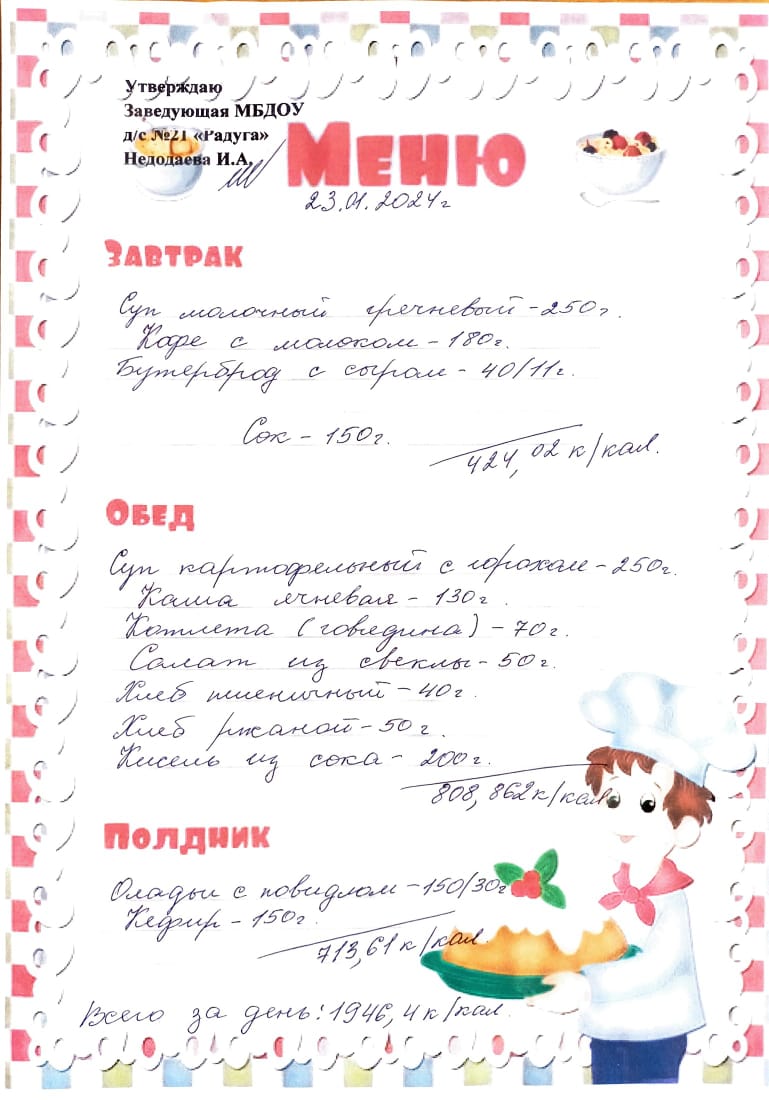 Утверждаю
Заведующая МБДОУ
д/с №21 «Радуга»
Недодаева И.А.
Меню
23.01.2024г
Завтрак
Суп молочный гречневый - 250г.
Кофе с молоком - 180г.
Бутерброд с сыром - 40/11г.
Сок - 150г.
424,02 к/кал.
Обед
Суп картофельный с горохом - 250г.
Каша ячневая - 130г.
Котлета (говядина) - 70г.
Салат из свеклы - 50г.
Хлеб пшеничный - 40г.
Хлеб ржаной - 50г.
Кисель из сока - 200г.
808,862к/кал
Полдник
Оладьи с повидлом - 150/30г
Кефир - 150г.
713,61 к/кал.
Всего за день: 1946,4 к/кал.